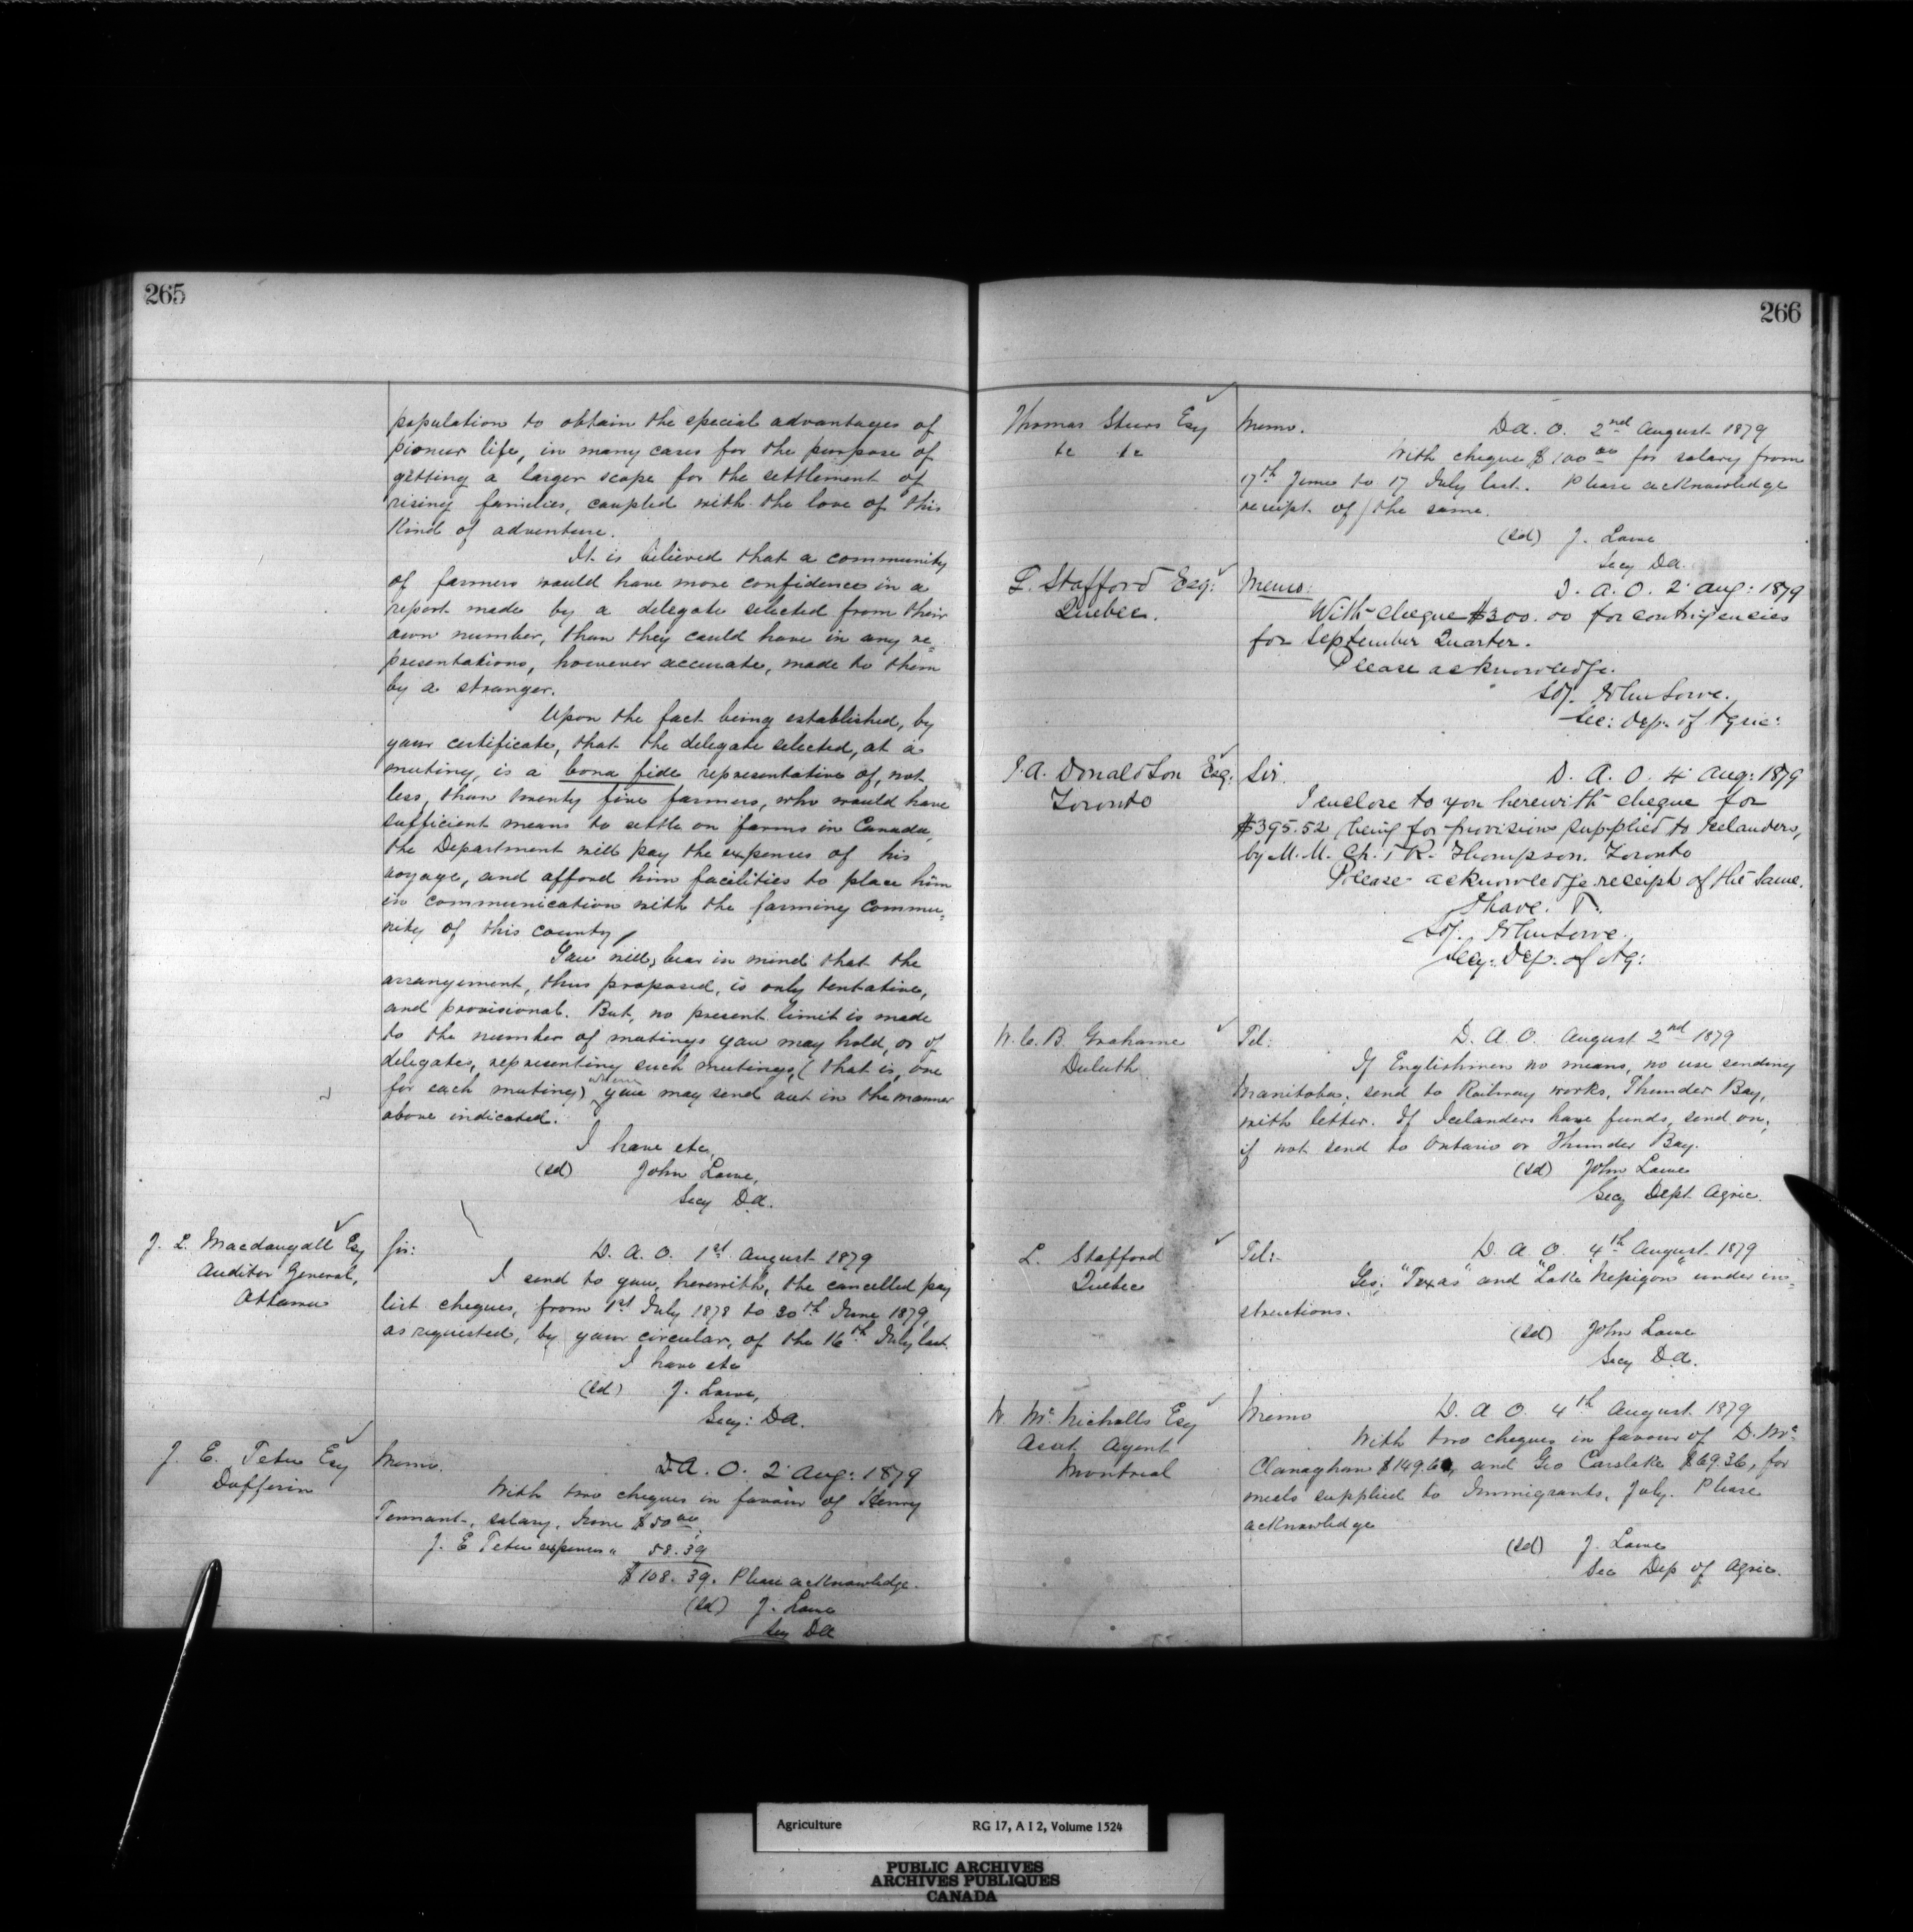 265
population to obtain the special advantages of
pioneer life, in many cases for the purpose of
getting a larger scope for the settlement of
rising families, coupled with the love of this
kind of adventure.
It is believed that a community
of farmers would have more confidence in a
report made by a delegate selected from their
own number, than they could have in any re=
presentations, however accurate, made to them
by a stranger.
Upon the fact being established, by
your certificate, that the delegate selected, at a
meeting, is a bona fide representative of, not
less, than twenty five farmers, who would have
sufficient means to settle on farms in Canada,
the Department will pay the expenses of his
voyage, and afford him facilities to place him
in communication with the farming commu=
nity of this county
You will, bear in mind that the
arrangement, thus proposed, is only tentative,
and provisional. But, no present limit is made
to the number of meetings you may hold, or of
delegates, representing such meetings, (that is, one
for each meeting) whom you may send out in the manner
above indicated.
I have etc,
(sd) John Lowe,
Secy D.A.
J. L. Macdougall Esq
Auditor General,
Ottawa
Sir:
D. A. O. 1st August 1879
I send to you, herewith, the cancelled pay
list cheques, from 1st July 1878 to 30th June 1879,
as requested, by your circular, of the 16th July last.
I have etc
(sd) J. Lowe,
Secy: DA.
J. E. Tetu Esq
Dufferin
Memo.
D.A. O. 2 Aug: 1879
With two cheques in favour of Henry
Tennant, salary, June $50 00
J. E Tetu expenses " 58.39
$108.39. Please acknowledge.
(sd) J. Lowe
Secy DA
266
Thomas Esq
Memo.
D.A. O. 2nd August 1879
With cheque $100 00 for salary from
17th June to 17 July last. Please acknowledge
receipt of the same.
(sd) J. Lowe
Secy DA.
L. Stafford Esq:
Quebec.
Memo:
D. A. O. 2 Aug: 1879
With cheque $300.00 for contingencies
for September Quarter.
Please acknowledge.
Sd/. John Lowe.
Sec: Dep. of Agric:
J. A. Donaldson Esq:
Toronto
Sir.
D. A. O. 4 Aug: 1879
I enclose to you herewith cheque for
$395.52 being for provisions supplied to Icelanders,
by M.M. Ch. & R. Thompson. Toronto
Please acknowledge receipt of the same.
I have.
Sd/. John Lowe.
Secy: Dep. of Ag:
W. C. B. Grahame
Duluth
Tel:
D. A. O. August 2nd 1879
If Englishmen no means, no use sending
Manitoba, send to Railway works, Thunder Bay,
with letter. If Icelanders have funds, send on,
if not send to Ontario or Thunder Bay.
(sd) John Lowe
Secy Dept Agric.
L. Stafford
Quebec
Tel:
D. A. O. 4th August 1879
Yes: "Texas" and "Lake Nepigon" under in=
structions.
(sd) John Lowe
Secy D.A.
W. Mc Nicholls Esq
Asst. Agent
Montreal
Memo
D. A. O. 4th August. 1879
With two cheques in favour of D. Mc
Clanaghan and Geo Carslake $69.36, for
meals supplied to Immigrants, July. Please
acknowledge
(sd) J. Lowe
Sec Dep of Agric.
Agriculture RG 17, A I 2, Volume 1524
PUBLIC ARCHIVES
ARCHIVES PUBLIQUES
CANADA